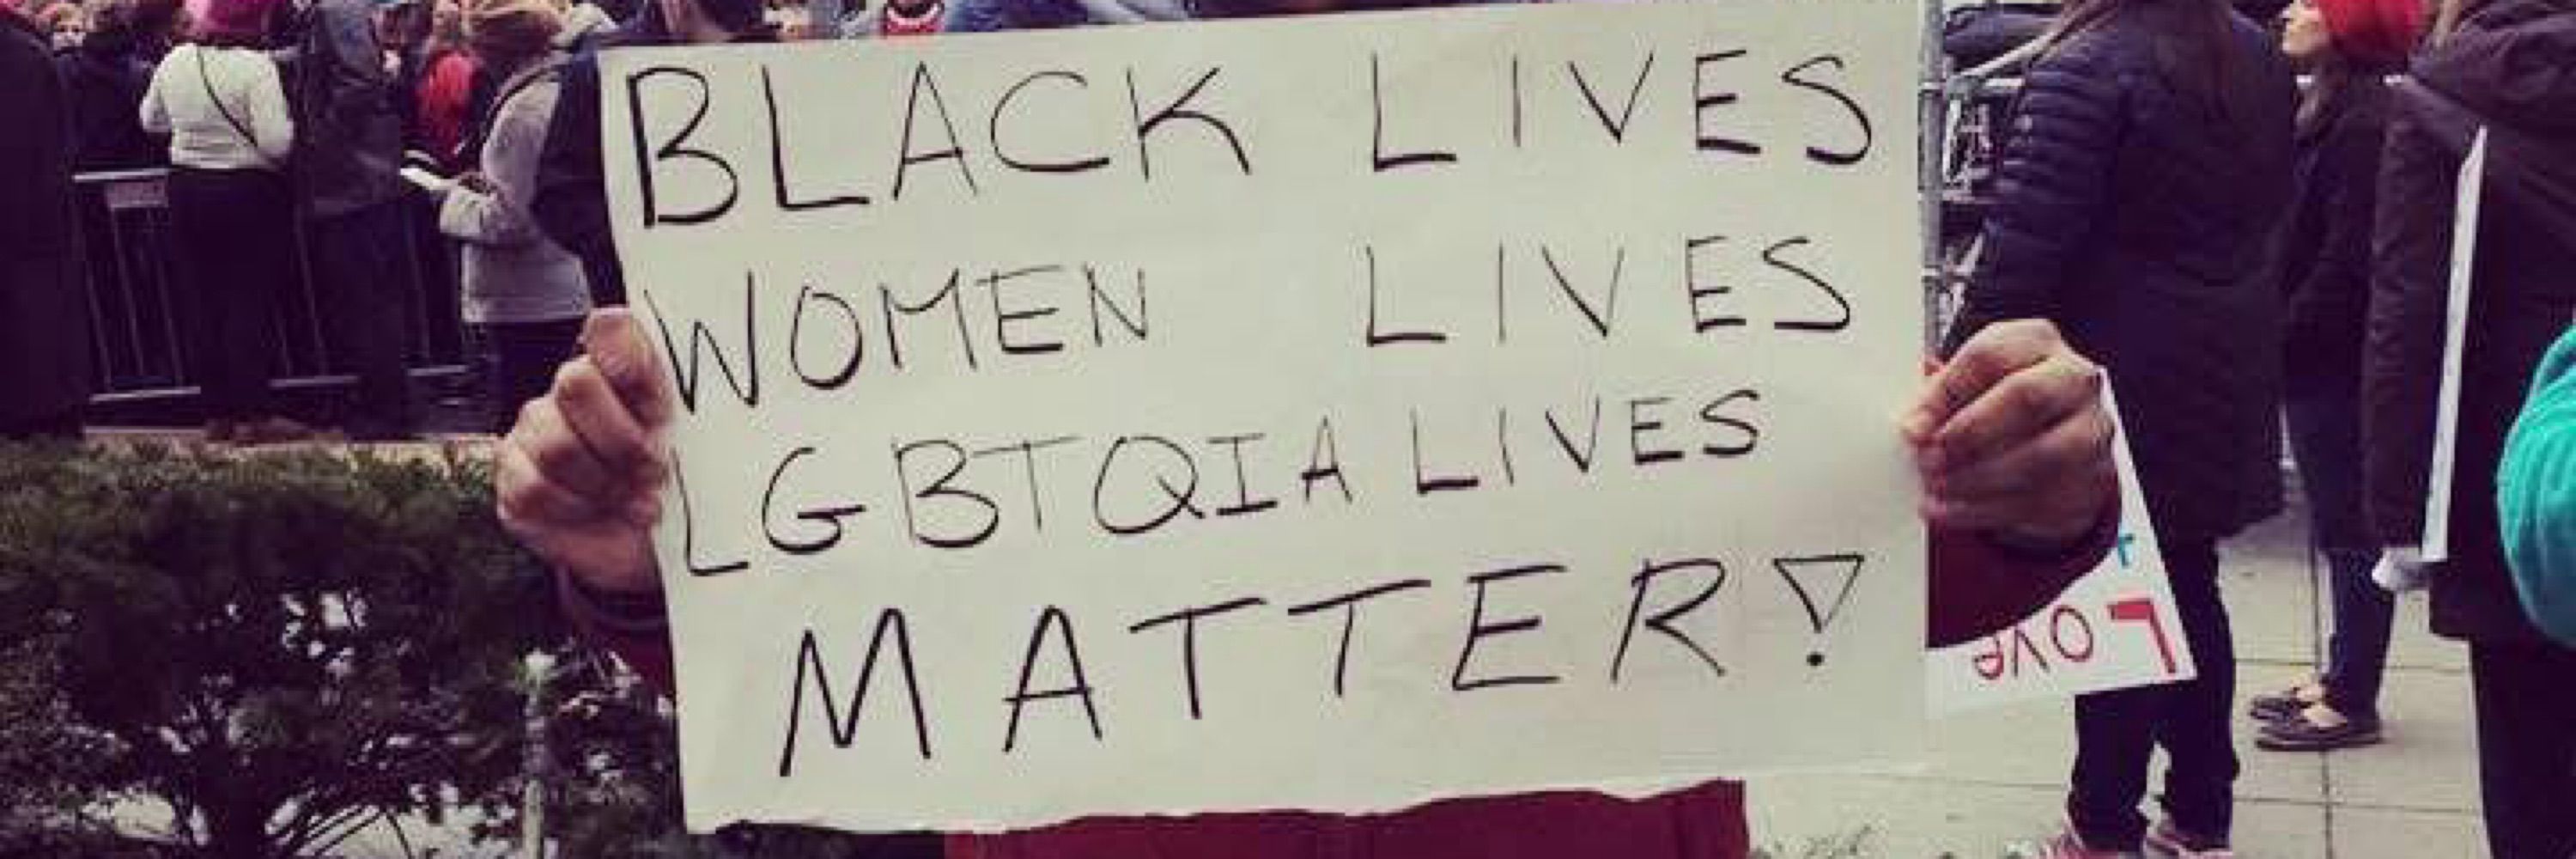 BLACK LIVES
WOMEN LIVES
LGBTQIA LIVES
MATTER!
Love